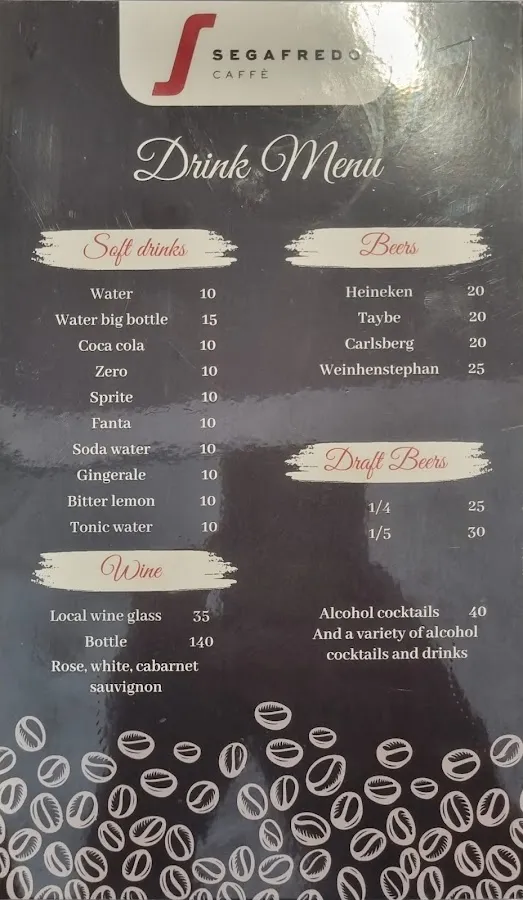 SEGAFREDO
CAFFÈ
Drink Menu
Soft drinks
Water 10
Water big bottle 15
Coca cola 10
Zero 10
Sprite 10
Fanta 10
Soda water 10
Gingerale 10
Bitter lemon 10
Tonic water 10
Wine
Local wine glass 35
Bottle 140
Rose, white, cabarnet
sauvignon
Beers
Heineken 20
Taybe 20
Carlsberg 20
Weinhenstephan 25
Draft Beers
1/4 25
1/5 30
Alcohol cocktails 40
And a variety of alcohol
cocktails and drinks